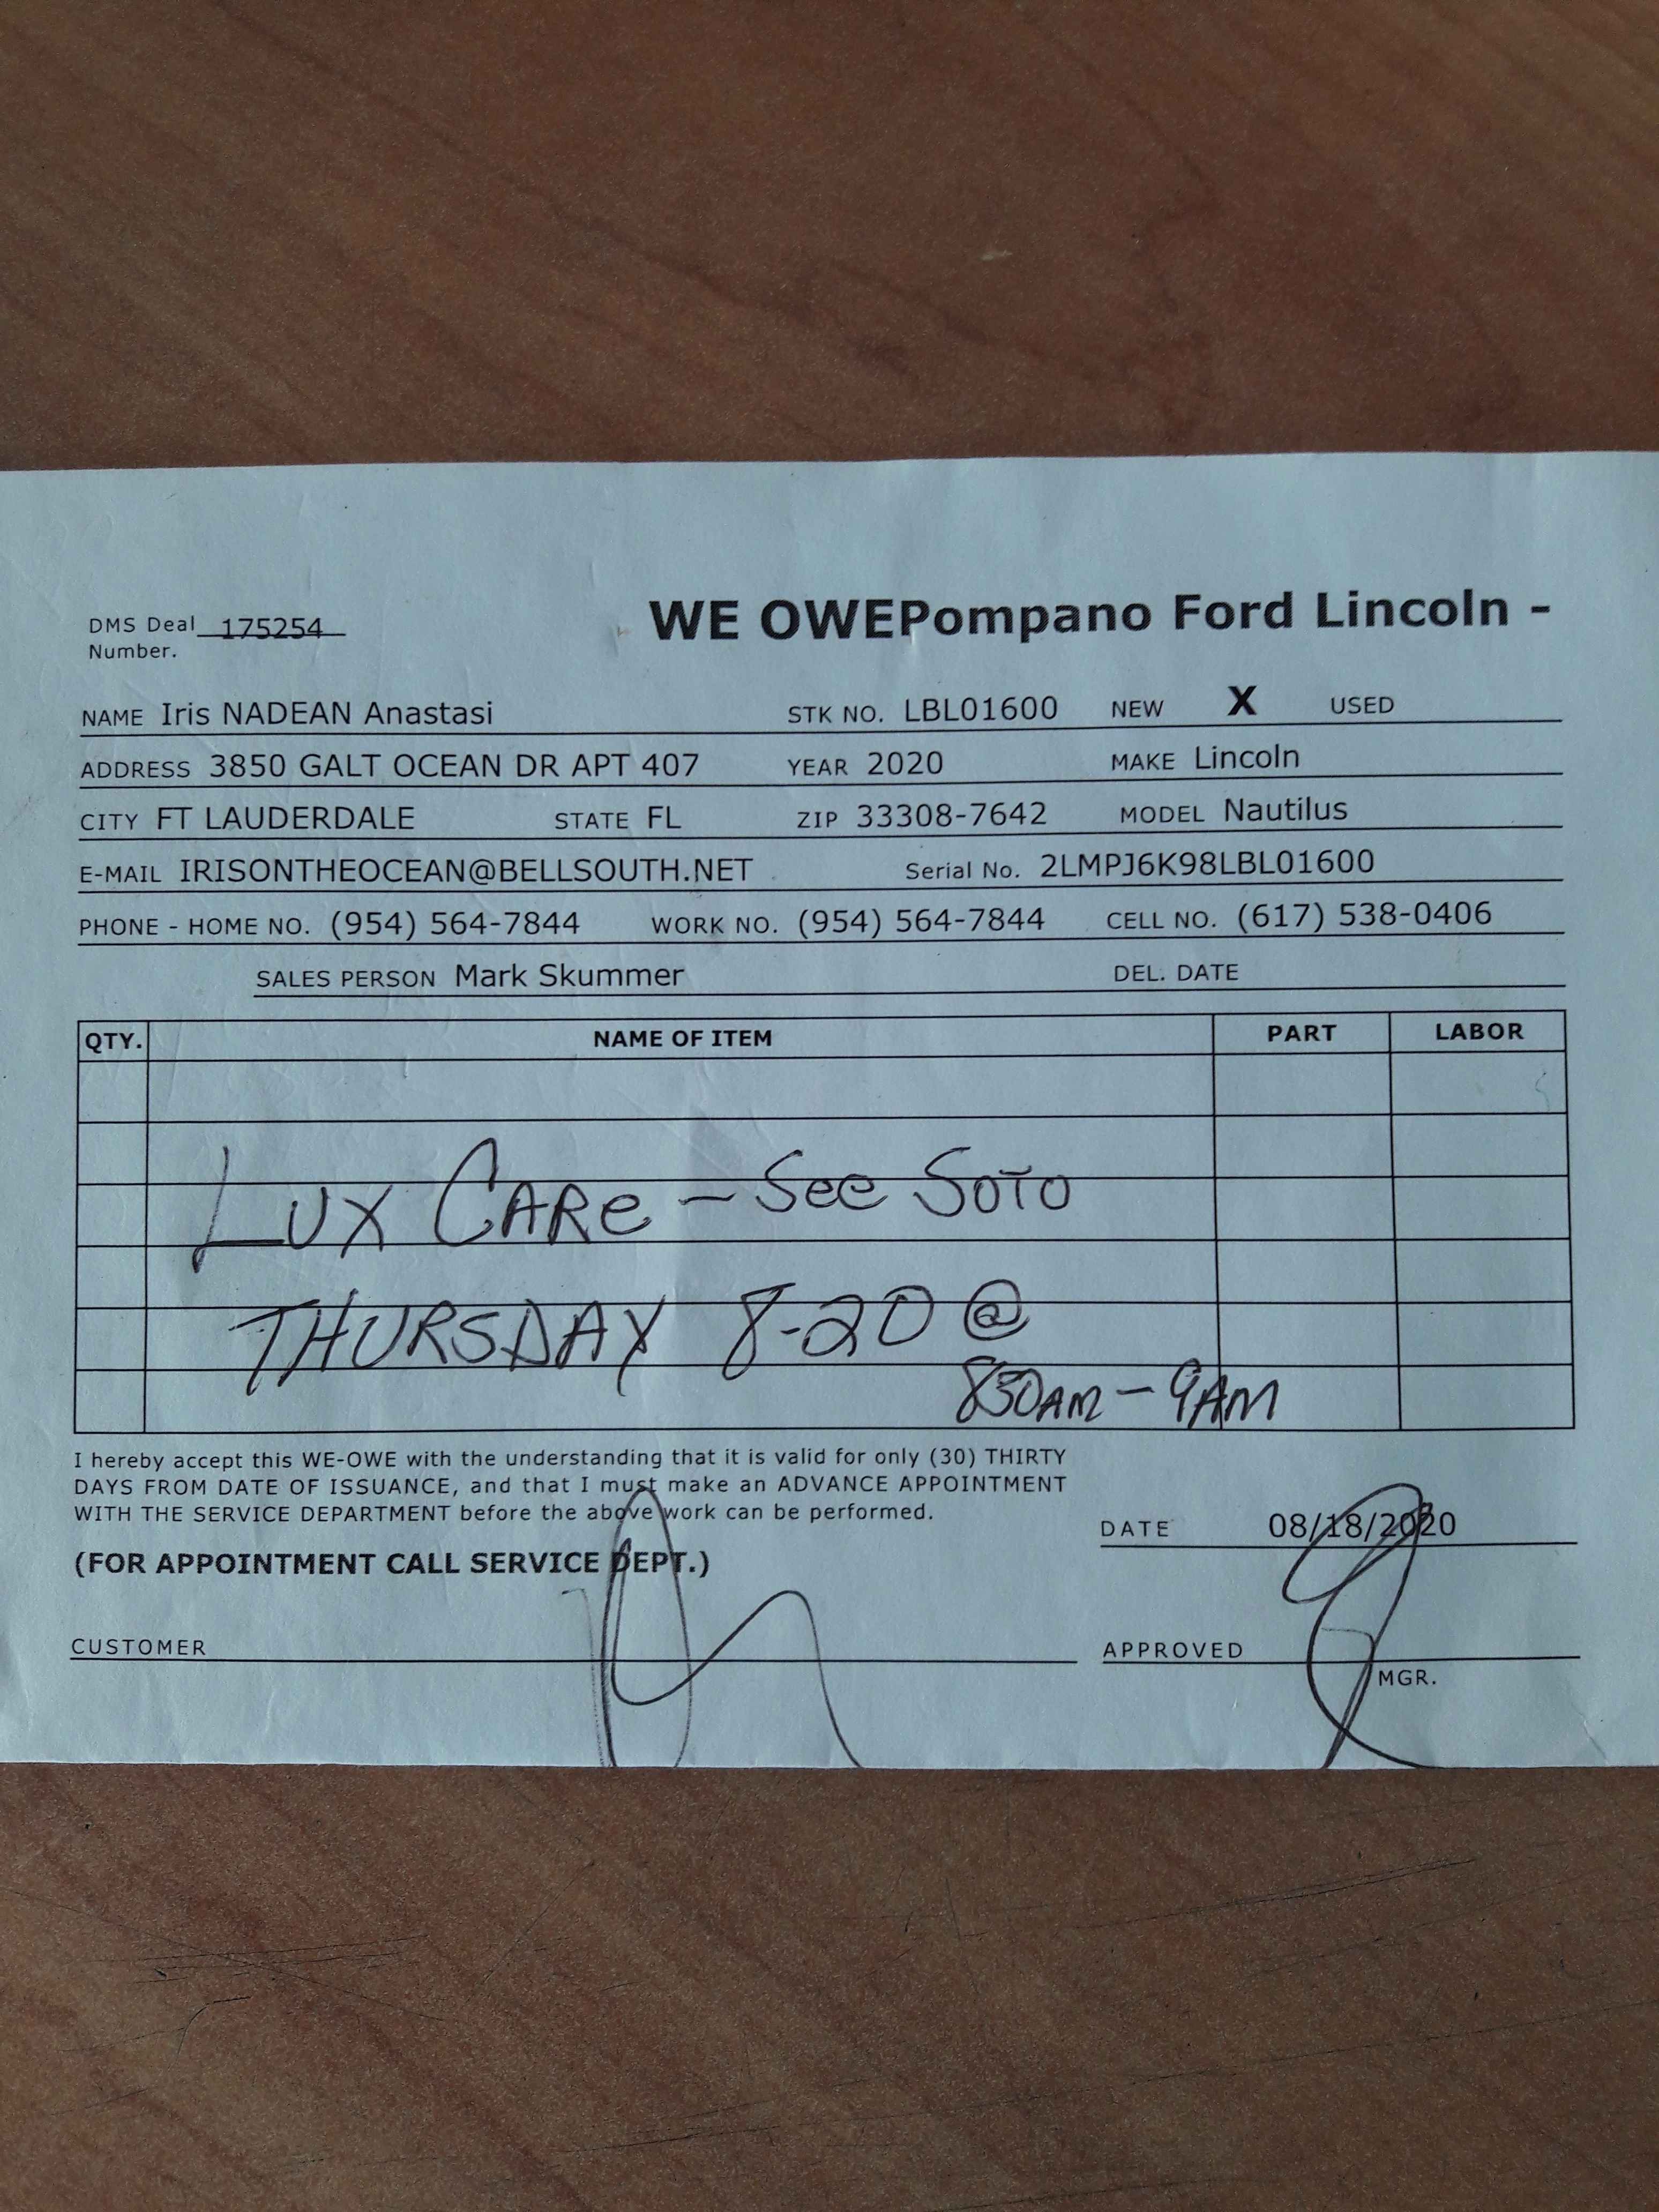 WE OWEPompano Ford Lincoln -
DMS Deal 175254
Number.
NAME Iris NADEAN Anastasi STK NO. LBL01600 NEW X USED
ADDRESS 3850 GALT OCEAN DR APT 407 YEAR 2020 MAKE Lincoln
CITY FT LAUDERDALE STATE FL ZIP 33308-7642 MODEL Nautilus
E-MAIL IRISONTHEOCEAN@BELLSOUTH.NET Serial No. 2LMPJ6K98LBL01600
PHONE - HOME NO. (954) 564-7844 WORK NO. (954) 564-7844 CELL NO. (617) 538-0406
SALES PERSON Mark Skummer DEL. DATE
QTY. NAME OF ITEM PART LABOR
LUX CARe - See SOTO
THURSDAY 8-20 @
830AM - 9AM
I hereby accept this WE-OWE with the understanding that it is valid for only (30) THIRTY
DAYS FROM DATE OF ISSUANCE, and that I must make an ADVANCE APPOINTMENT
WITH THE SERVICE DEPARTMENT before the above work can be performed.
DATE 08/18/2020
(FOR APPOINTMENT CALL SERVICE DEPT.)
CUSTOMER APPROVED
MGR.